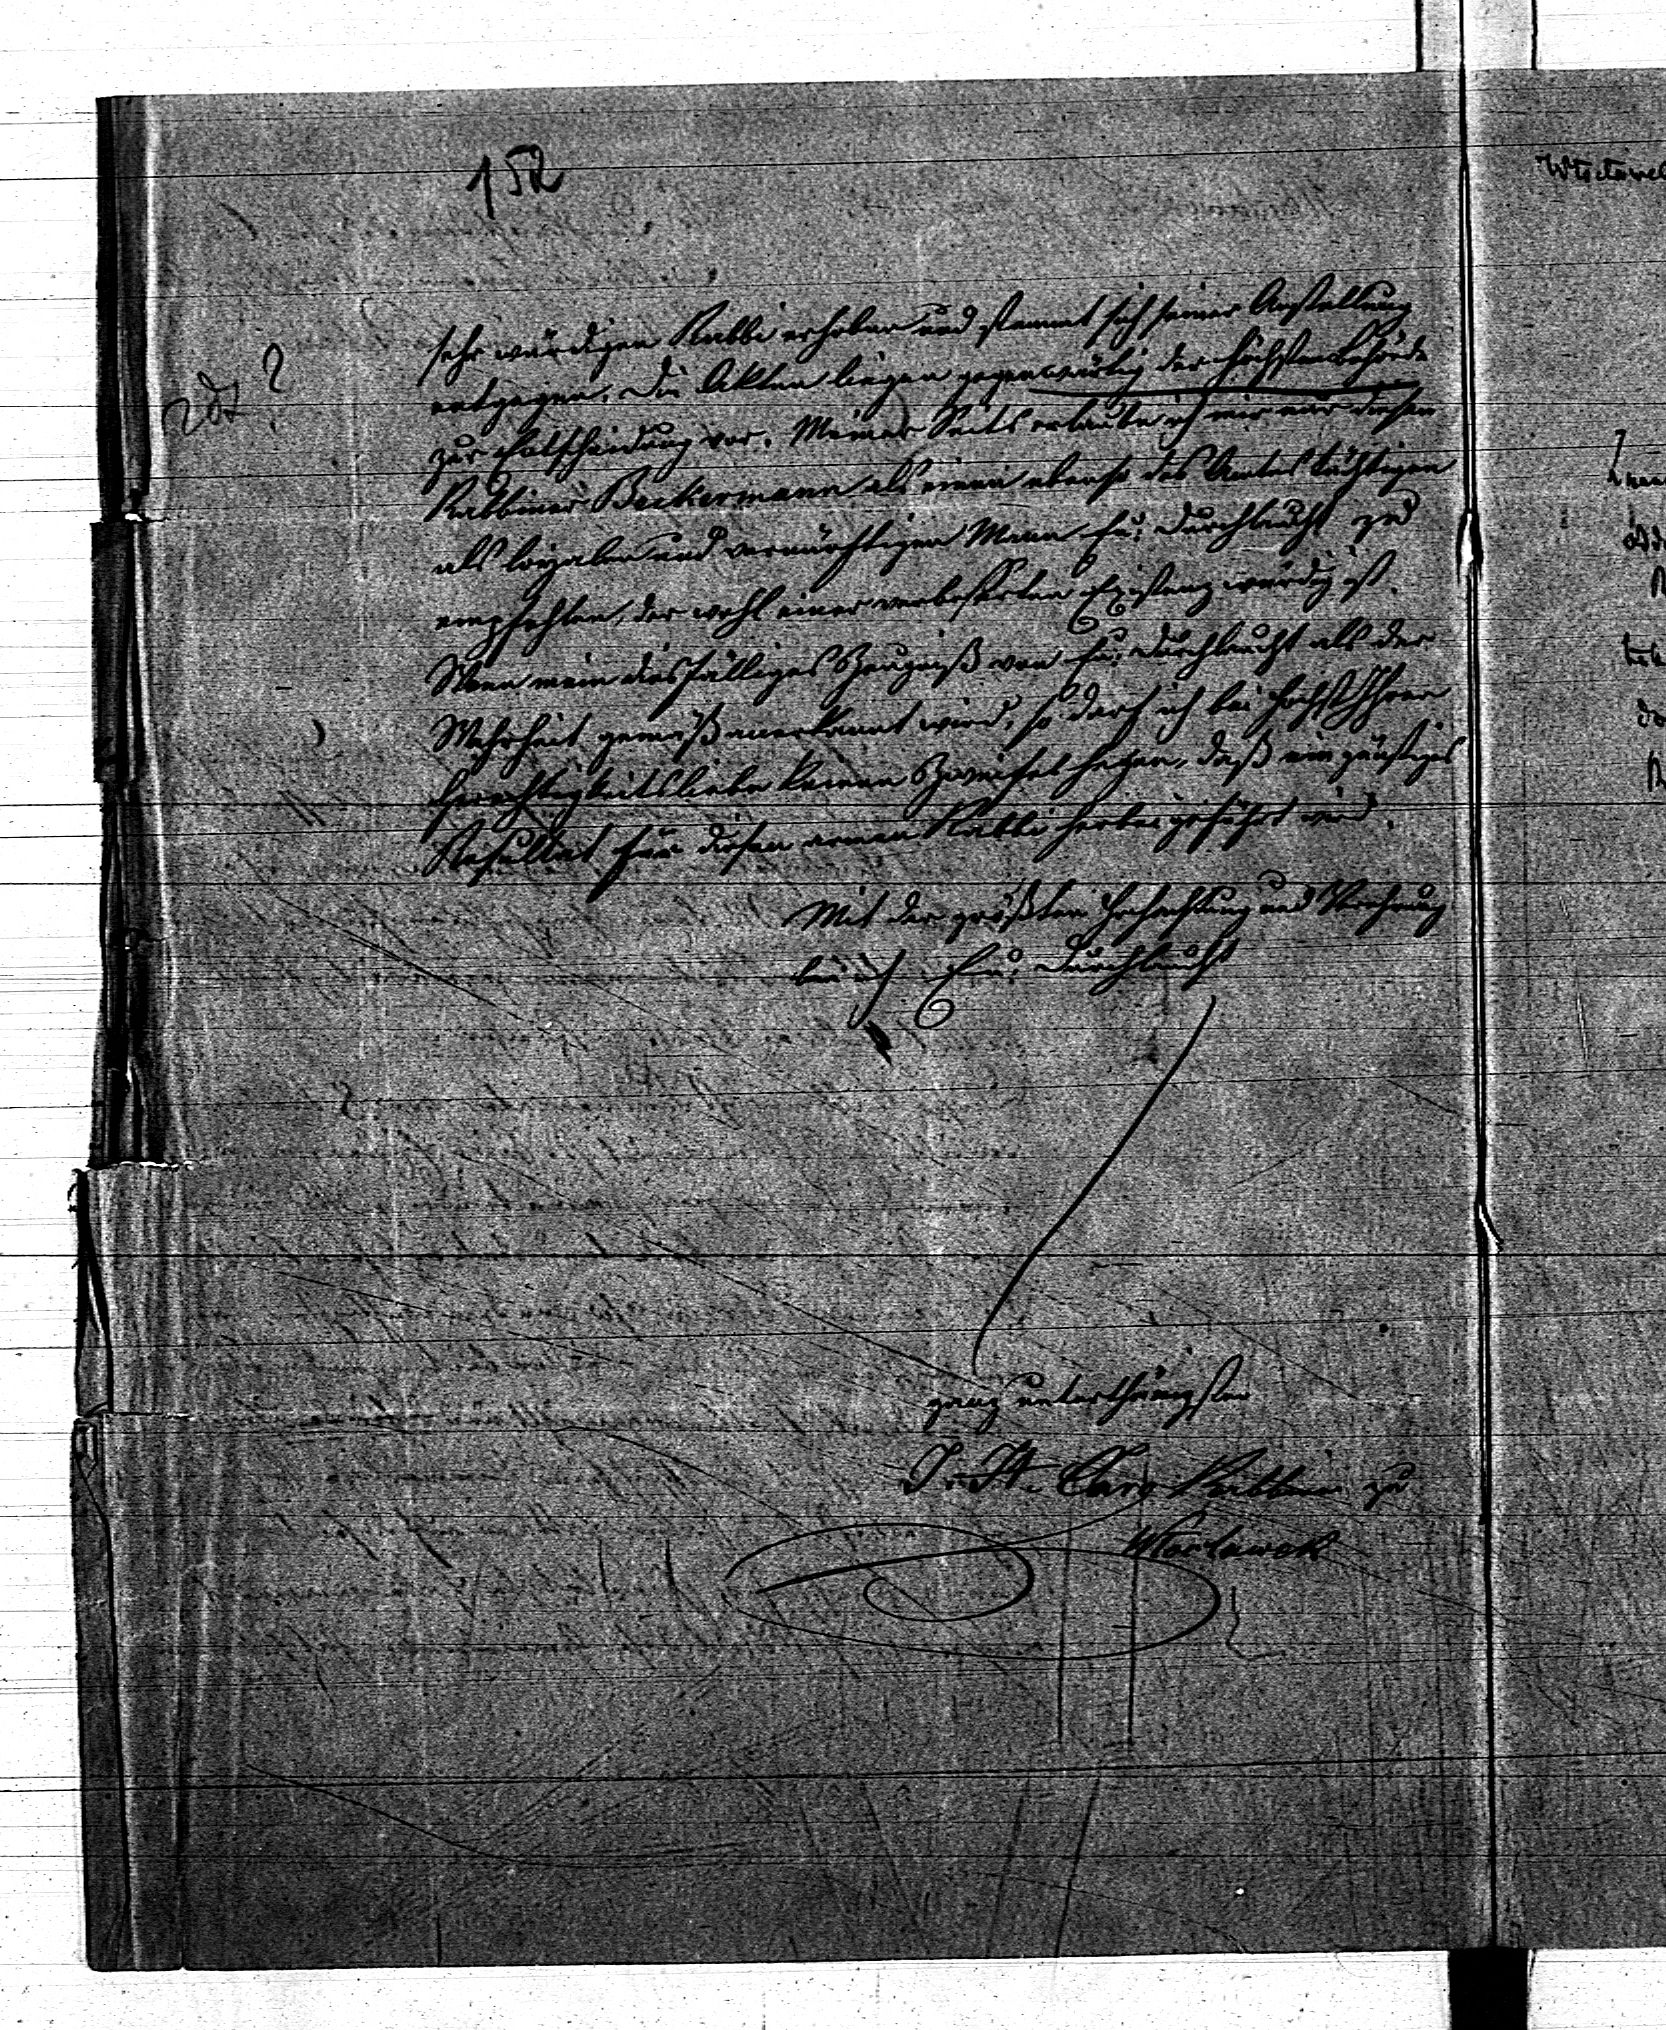 152
sehr würdigen Rabbi erhoben und stemmt sich seiner Anstellung
entgegen. Die Akten liegen gegenwärtig der höchsten Behörde
zur Entscheidung vor. Meiner Seits erlaube ich mir nur diesen
Rabbiner Beckermann als einen ebenso des Amtes tüchtigen
als loyalen und vernünftigen Mann Eu: Durchlaucht zu
empfehlen, der wohl einer verbesserten Existenz würdig ist.
Wenn mein diesfälliges Zeugniß von Eu: Durchlaucht als der
Wahrheit gemäß anerkannt wird, so darf ich bei Höchst Ihrer
Gerechtigkeitsliebe keinen Zweifel hegen, daß ein günstiges
Resultat für diesen armen Rabbi herbeigeführt wird.
Mit der größten Hochachtung und Verehrung
bin ich Eu: Durchlaucht
ganz unterthänigster
J. Caro Rabbiner zu
Włocławek